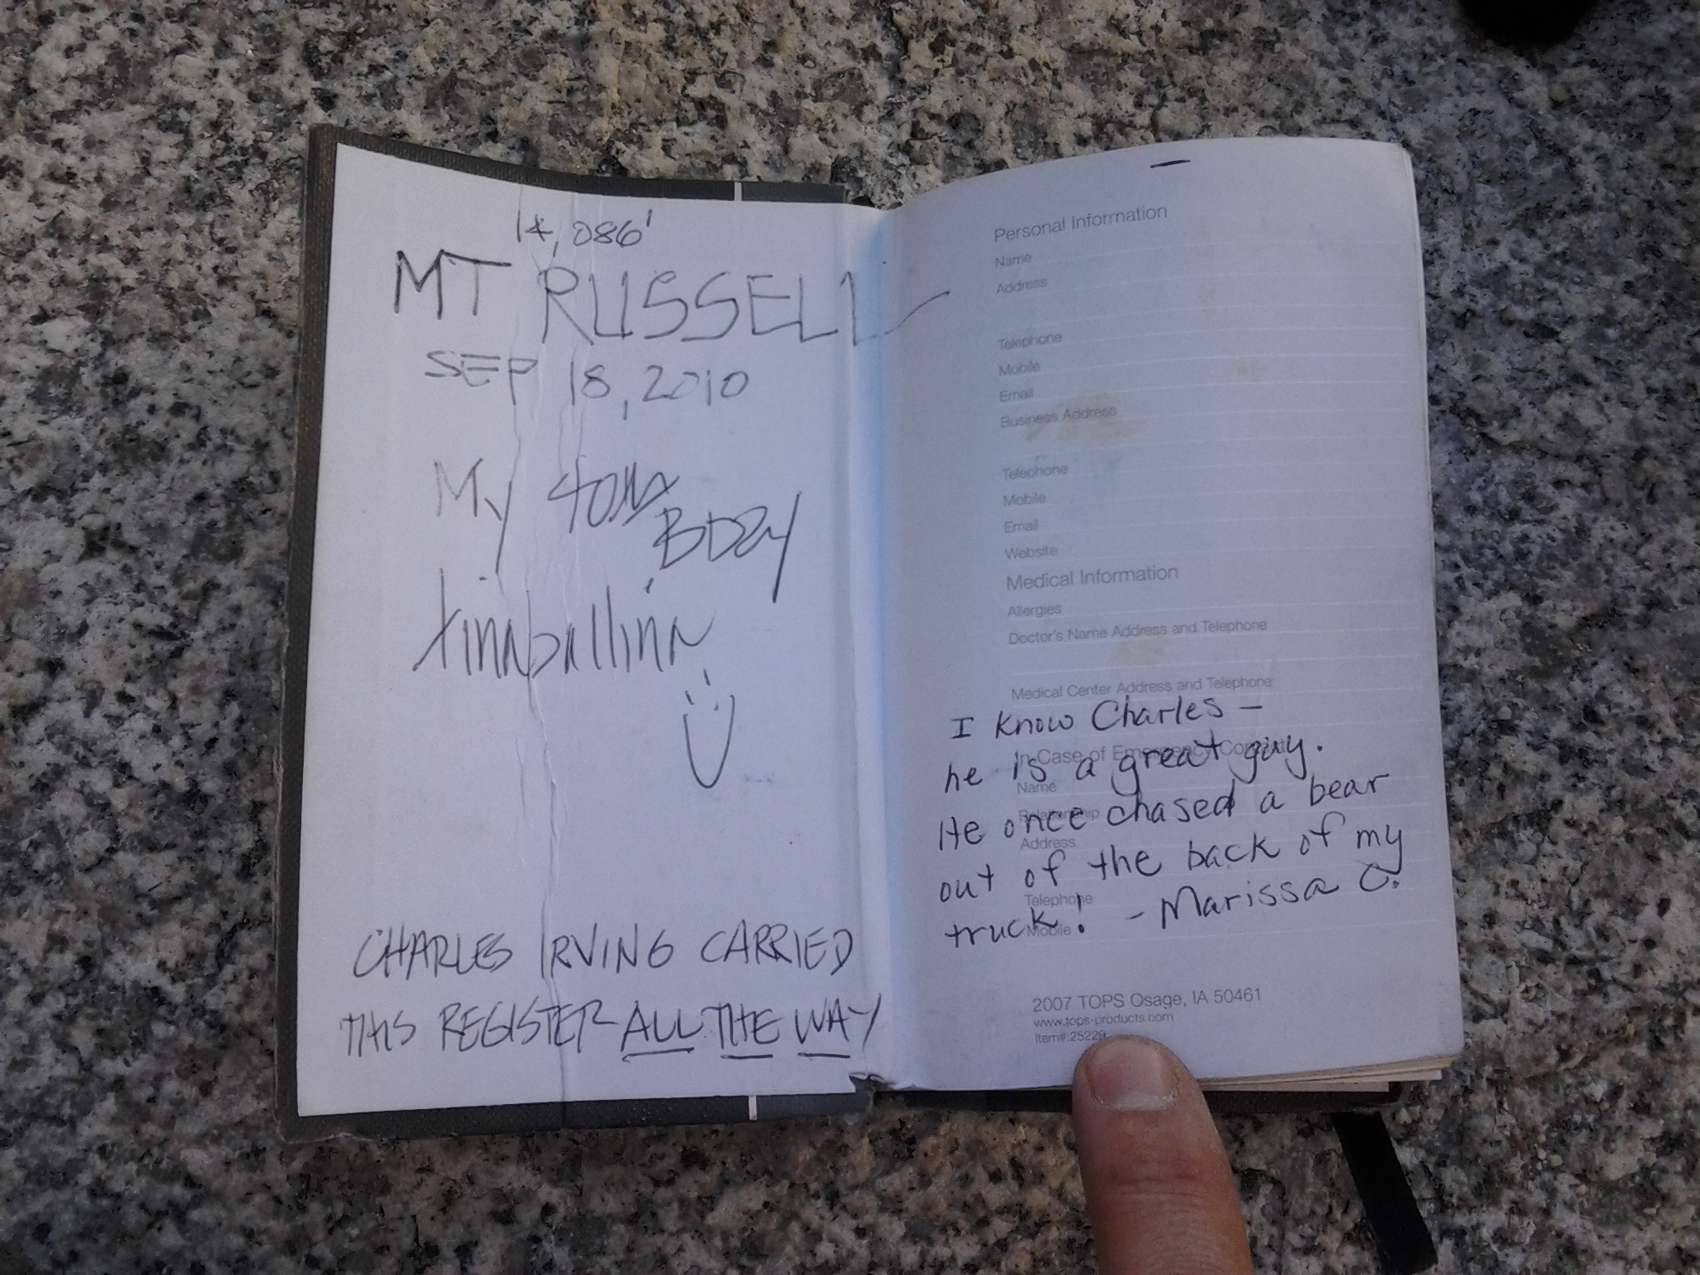 14,086'
MT RUSSELL
SEP 18, 2010
My 40th
BDay
CHARLES IRVING CARRIED
THIS REGISTER ALL THE WAY
Personal Information
Name
Address
Telephone
Mobile
Email
Business Address
Telephone
Mobile
Email
Website
Medical Information
Allergies
Doctor's Name Address and Telephone
Medical Center Address and Telephone
I know Charles —
In Case of Emergency Contact
he is a great guy.
Name
He once chased a bear
Relationship
Address
out of the back of my
Telephone
truck! - Marissa C.
Mobile
2007 TOPS Osage, IA 50461
www.tops-products.com
Item#:25229